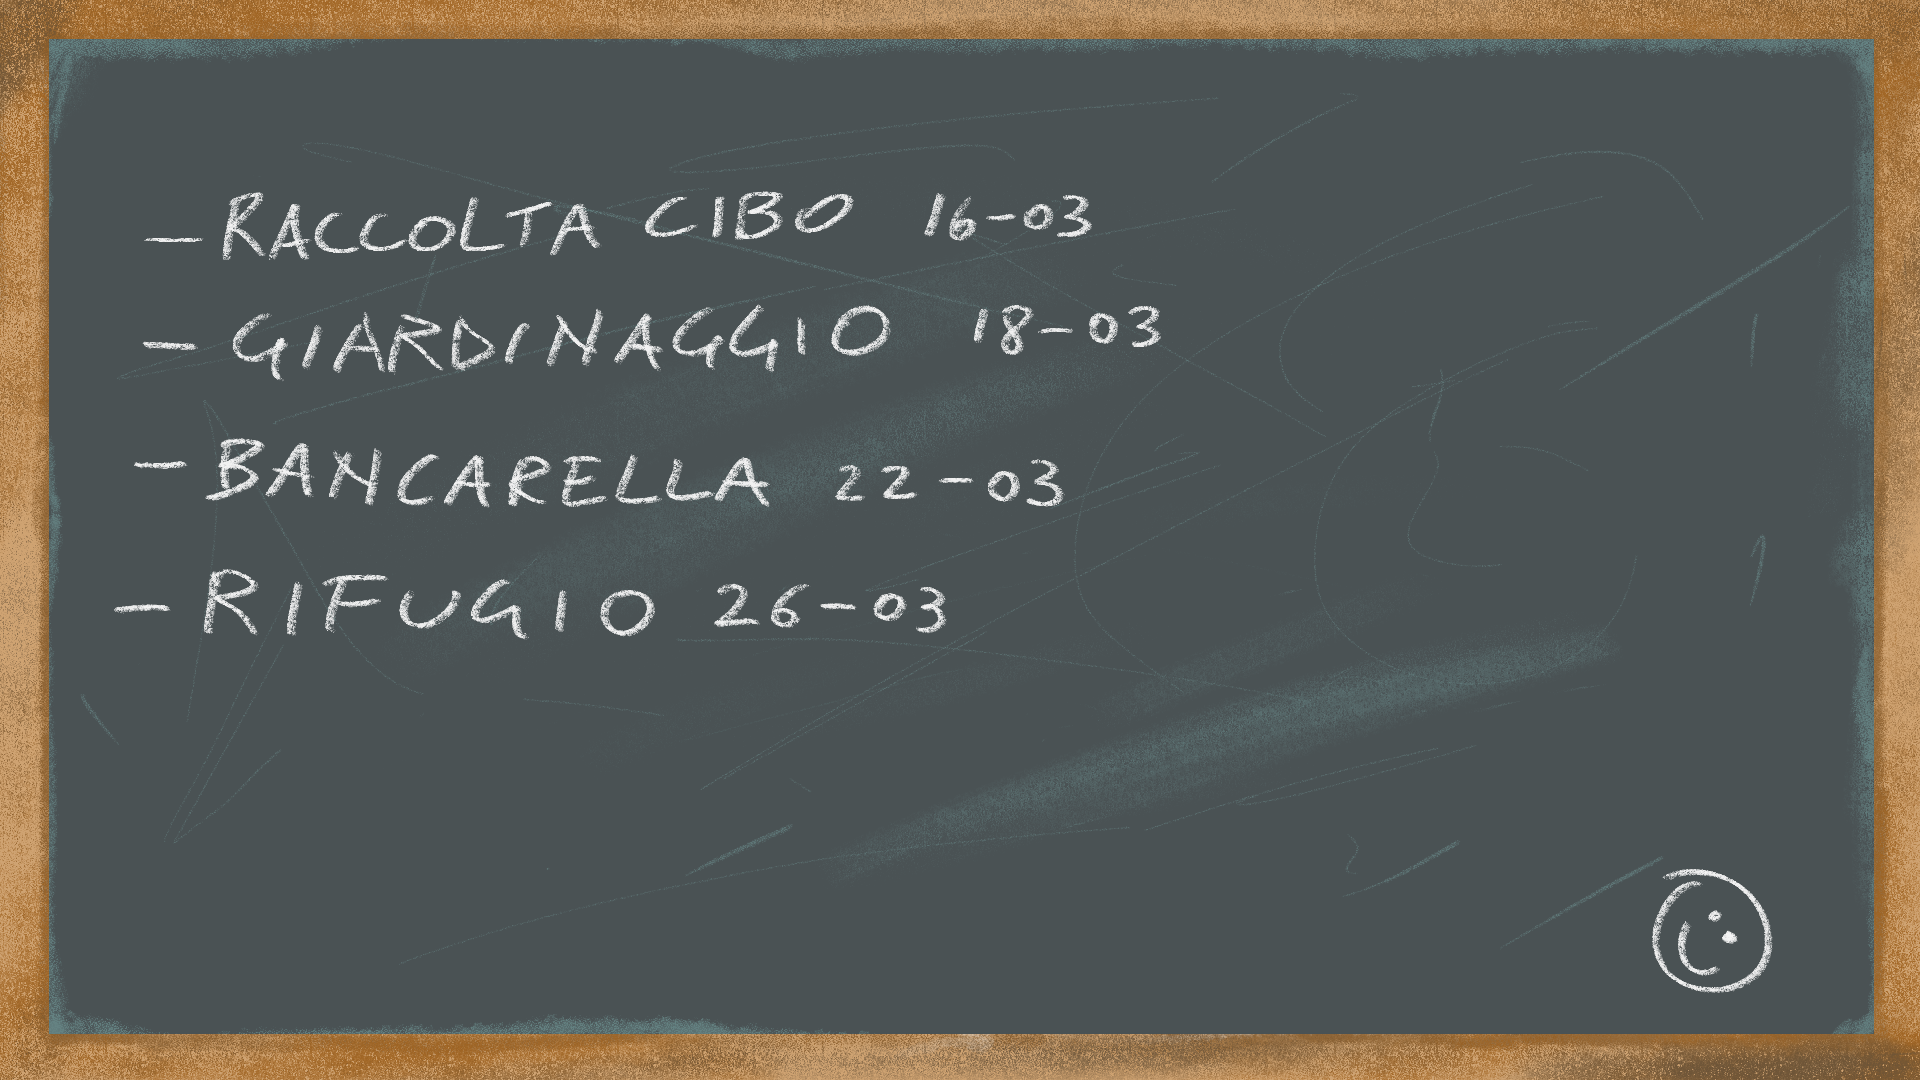 - RACCOLTA CIBO 16-03
- GIARDINAGGIO 18-03
- BANCARELLA 22-03
- RIFUGIO 26-03